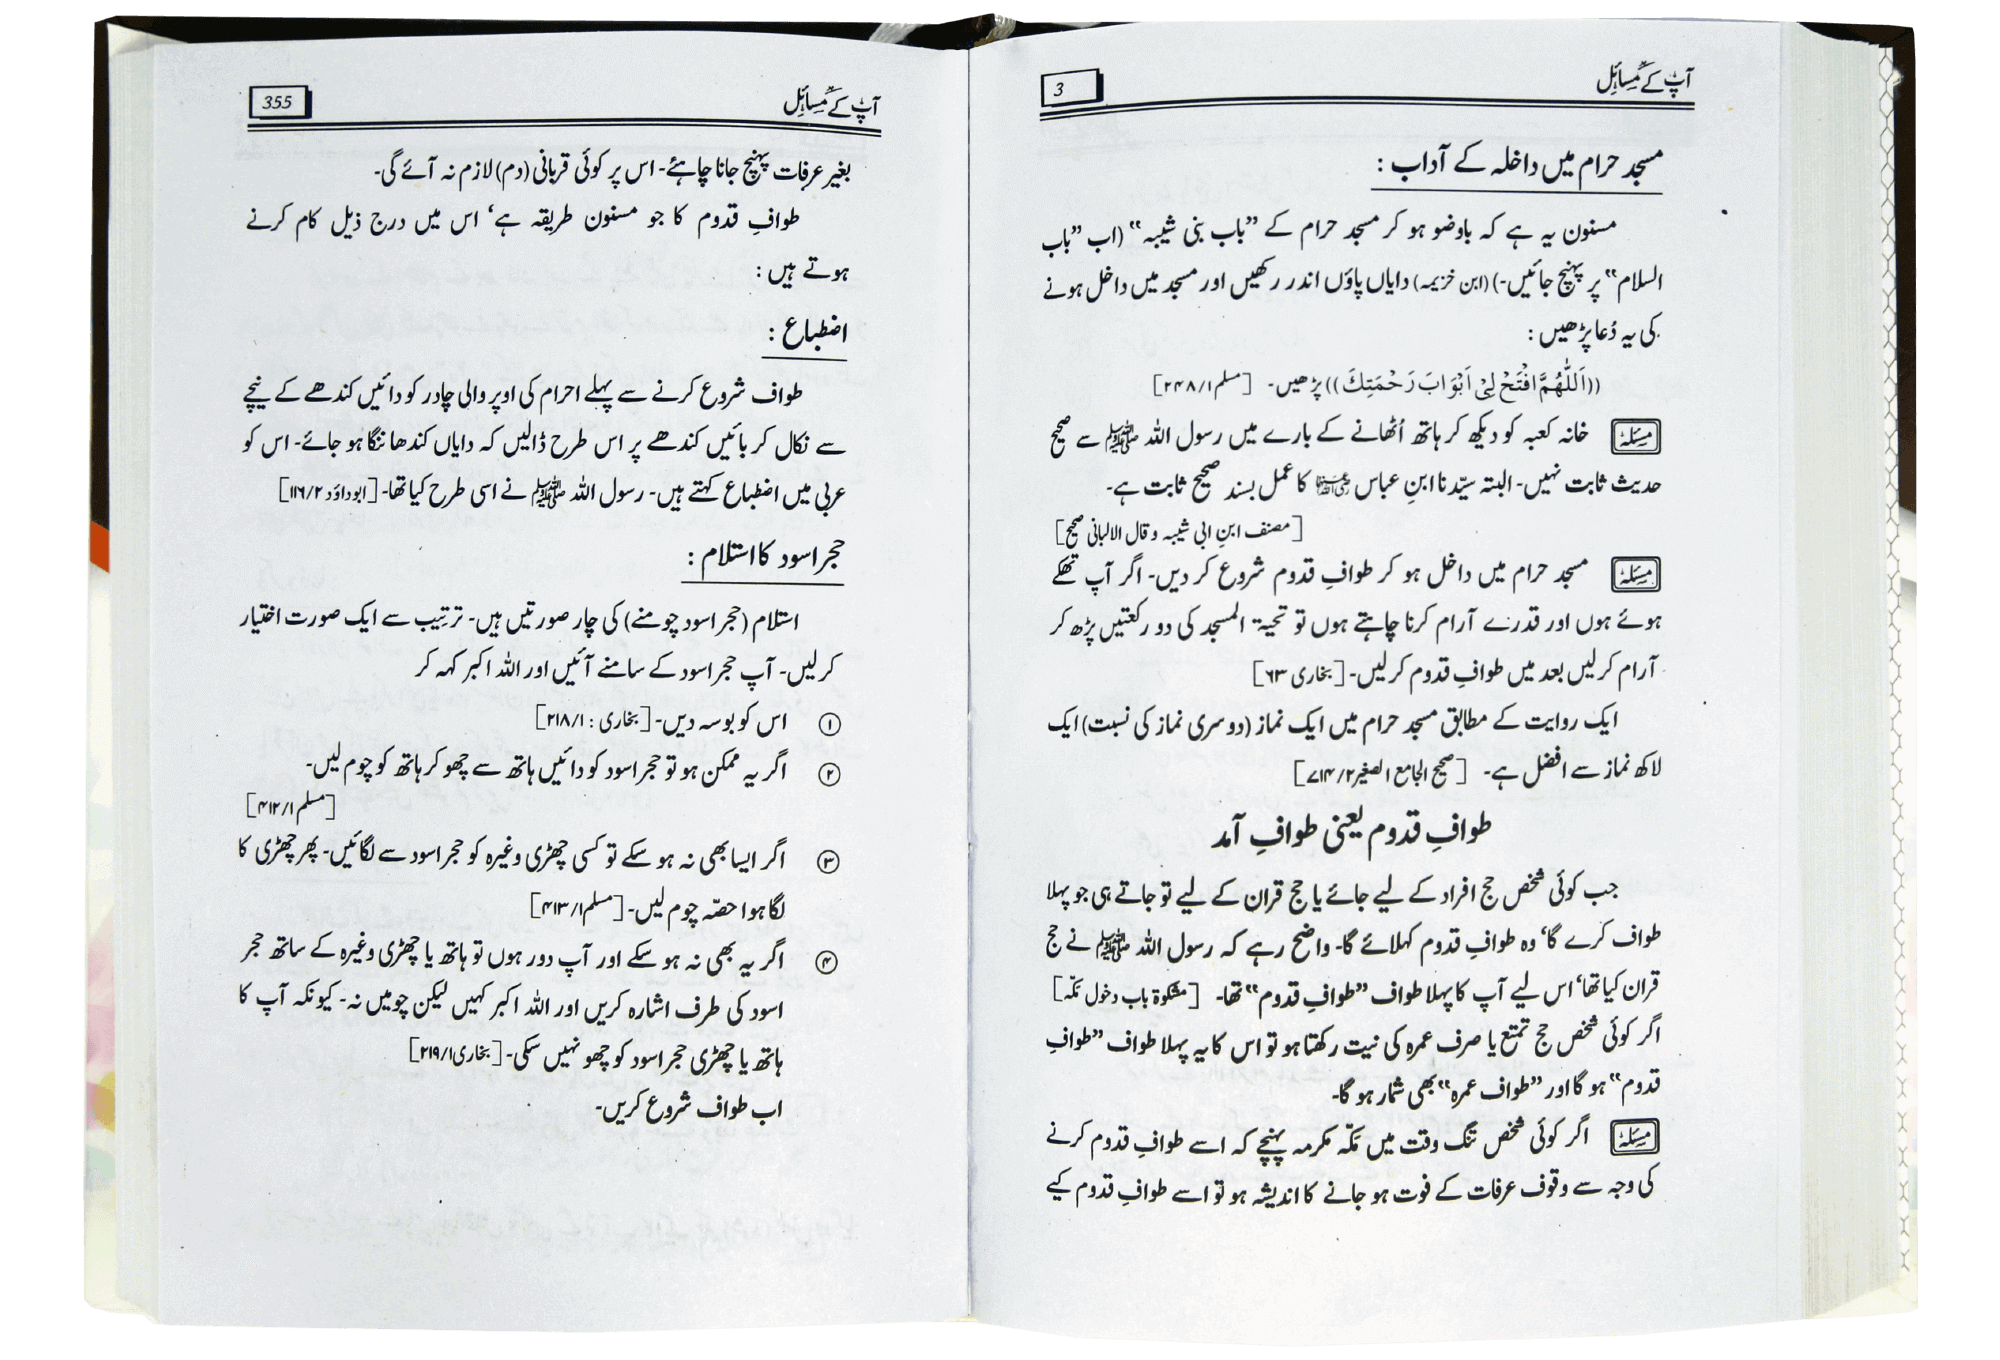 آپ کے مسائل
3
مسجد حرام میں داخلہ کے آداب :
مسنون یہ ہے کہ باوضو ہو کر مسجد حرام کے ”باب بنی شیبہ“ (اب ”باب
السلام“ پر پہنچ جائیں۔) (ابن خزیمہ) دایاں پاؤں اندر رکھیں اور مسجد میں داخل ہونے
کی یہ دُعا پڑھیں :
((اَللّٰهُمَّ افْتَحْ لِيْ اَبْوَابَ رَحْمَتِكَ)) پڑھیں۔ [مسلم ۲۴۸/۱]
مسئلہ خانہ کعبہ کو دیکھ کر ہاتھ اُٹھانے کے بارے میں رسول اللہ ﷺ سے صحیح
حدیث ثابت نہیں۔ البتہ سیّدنا ابنِ عباس رضی اللہ عنہما کا عمل بسند صحیح ثابت ہے۔
[مصنف ابنِ ابی شیبہ و قال الالبانی صحیح]
مسئلہ مسجد حرام میں داخل ہو کر طوافِ قدوم شروع کر دیں۔ اگر آپ تھکے
ہوئے ہوں اور قدرے آرام کرنا چاہتے ہوں تو تحیۃ المسجد کی دو رکعتیں پڑھ کر
آرام کر لیں بعد میں طوافِ قدوم کر لیں۔ [بخاری ۶۳]
ایک روایت کے مطابق مسجد حرام میں ایک نماز (دوسری نماز کی نسبت) ایک
لاکھ نماز سے افضل ہے۔ [صحیح الجامع الصغیر ۷۱۴/۲]
طوافِ قدوم یعنی طوافِ آمد
جب کوئی شخص حج افراد کے لیے جائے یا حج قران کے لیے تو جاتے ہی جو پہلا
طواف کرے گا‘ وہ طوافِ قدوم کہلائے گا۔ واضح رہے کہ رسول اللہ ﷺ نے حج
قران کیا تھا‘ اس لیے آپ کا پہلا طواف ”طوافِ قدوم“ تھا۔ [مشکوۃ باب دخول مکّہ]
اگر کوئی شخص حج تمتع یا صرف عمرہ کی نیت رکھتا ہو تو اس کا یہ پہلا طواف ”طوافِ
قدوم“ ہو گا اور ”طواف عمرہ“ بھی شمار ہو گا۔
مسئلہ اگر کوئی شخص تنگ وقت میں مکّہ مکرمہ پہنچے کہ اسے طوافِ قدوم کرنے
کی وجہ سے وقوف عرفات کے فوت ہو جانے کا اندیشہ ہو تو اسے طوافِ قدوم کیے
آپ کے مسائل
355
بغیر عرفات پہنچ جانا چاہئے۔ اس پر کوئی قربانی (دم) لازم نہ آئے گی۔
طوافِ قدوم کا جو مسنون طریقہ ہے‘ اس میں درج ذیل کام کرنے
ہوتے ہیں :
اضطباع :
طواف شروع کرنے سے پہلے احرام کی اوپر والی چادر کو دائیں کندھے کے نیچے
سے نکال کر بائیں کندھے پر اس طرح ڈالیں کہ دایاں کندھا ننگا ہو جائے۔ اس کو
عربی میں اضطباع کہتے ہیں۔ رسول اللہ ﷺ نے اسی طرح کیا تھا۔ [ابوداؤد ۱۱۶/۲]
حجر اسود کا استلام :
استلام (حجر اسود چومنے) کی چار صورتیں ہیں۔ ترتیب سے ایک صورت اختیار
کر لیں۔ آپ حجر اسود کے سامنے آئیں اور اللہ اکبر کہہ کر
① اس کو بوسہ دیں۔ [بخاری : ۲۱۸/۱]
② اگر یہ ممکن ہو تو حجر اسود کو دائیں ہاتھ سے چھو کر ہاتھ کو چوم لیں۔
[مسلم ۴۱۲/۱]
③ اگر ایسا بھی نہ ہو سکے تو کسی چھڑی وغیرہ کو حجر اسود سے لگائیں۔ پھر چھڑی کا
لگا ہوا حصّہ چوم لیں۔ [مسلم ۴۱۳/۱]
④ اگر یہ بھی نہ ہو سکے اور آپ دور ہوں تو ہاتھ یا چھڑی وغیرہ کے ساتھ حجر
اسود کی طرف اشارہ کریں اور اللہ اکبر کہیں لیکن چومیں نہ۔ کیونکہ آپ کا
ہاتھ یا چھڑی حجر اسود کو چھو نہیں سکی۔ [بخاری ۲۱۹/۱]
اب طواف شروع کریں۔